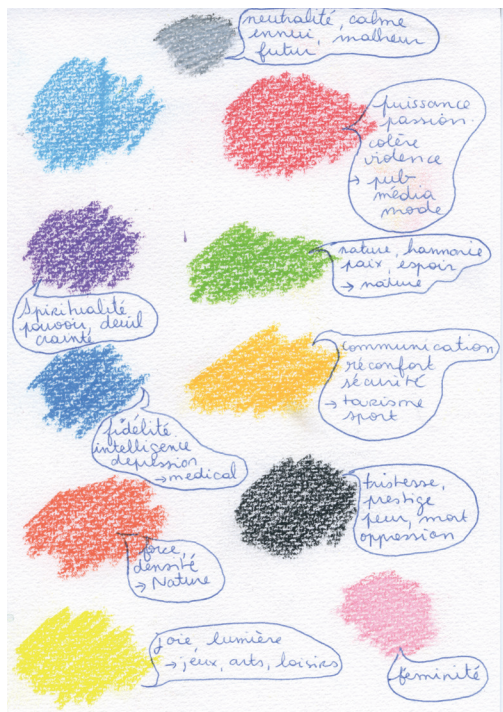 neutralité, calme
ennui, malheur
futur
puissance
passion
colère
violence
→ pub
média
mode
nature, harmonie
paix, espoir
→ nature
Spiritualité
pouvoir, deuil
crainte
communication
réconfort
sécurité
→ tourisme
sport
fidélité
intelligence
depression
→ medical
tristesse,
prestige
peur, mort
oppression
force,
densité
→ Nature
joie lumière
→ jeux, arts, loisirs
feminité